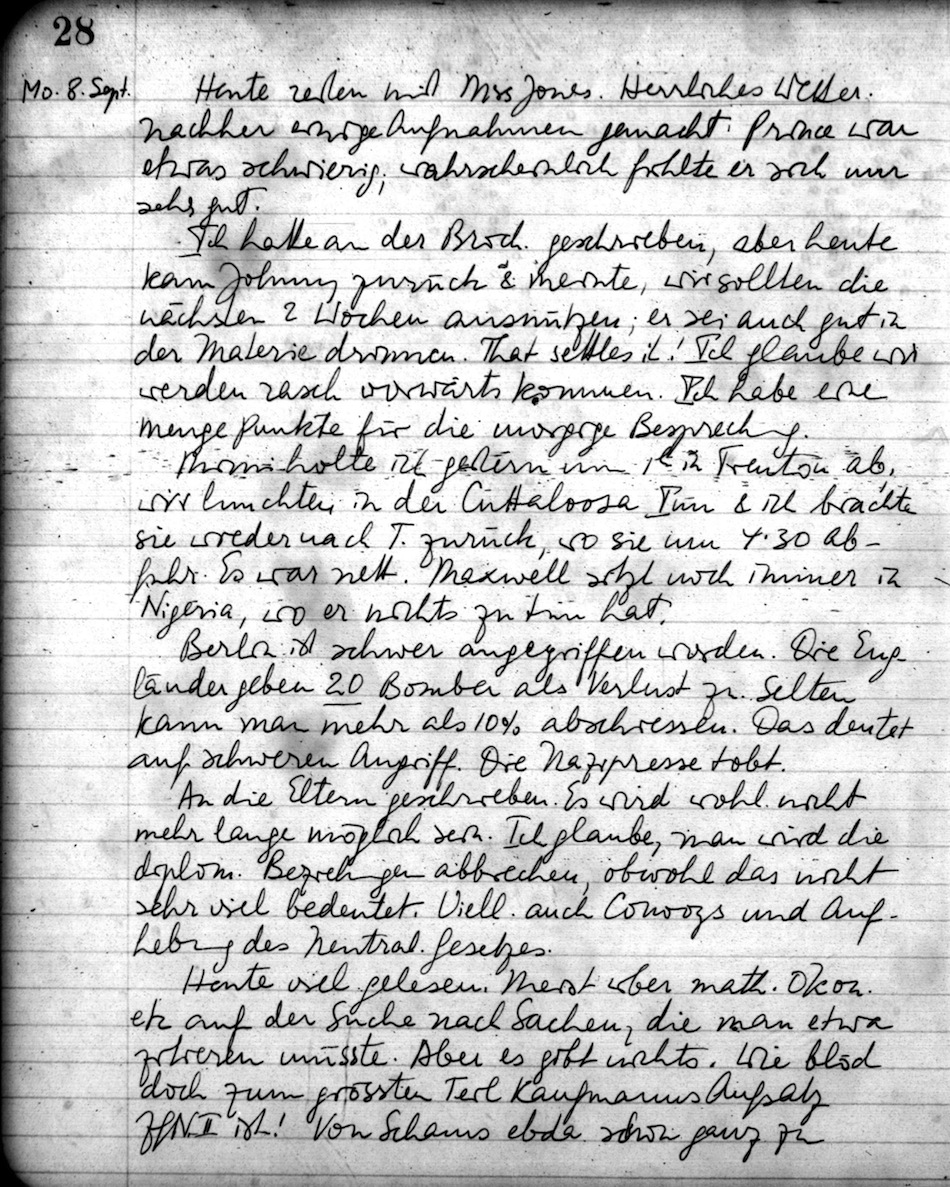 28
Mo. 8. Sept. Heute reiten mit Miss Jones. Herrliches Wetter.
Nachher einige Aufnahmen gemacht. Prince war
etwas schwierig; wahrscheinlich fühlte er sich nur
sehr gut.
Ich hatte an der Brosch. geschrieben, aber heute
kam Johnny zurück & meinte, wir sollten die
nächsten 2 Wochen ausnützen; er sei auch gut in
der Materie drinnen. That settles it! Ich glaube wir
werden rasch vorwärts kommen. Ich habe eine
Menge Punkte für die morgige Besprechung.
holte ich gestern um in Trenton ab,
wir lunchten in der Cuttaloosa Inn & ich brachte
sie wieder nach T. zurück, wo sie um 4.30 ab-
fuhr. Es war nett. Maxwell sitzt noch immer in
Nigeria, wo er nichts zu tun hat.
Berlin ist schwer angegriffen worden. Die Eng-
länder geben 20 Bomber als Verlust zu. Selten
kann man mehr als 10% abschiessen. Das deutet
auf schweren Angriff. Die Nazipresse tobt.
An die Eltern geschrieben. Es wird wohl nicht
mehr lange möglich sein. Ich glaube, man wird die
diplom. Beziehungen abbrechen, obwohl das nicht
sehr viel bedeutet. Viell. auch Convoys und Auf-
hebung des Neutral. Gesetzes.
Heute viel gelesen. Meist über math. Ökon.
etc auf der Suche nach Sachen, die man etwa
zitieren müsste. Aber es gibt nichts. Wie blöd
doch zum grössten Teil Kaufmanns Aufsatz
ZfN. II ist! Von Schams ebda schon ganz zu